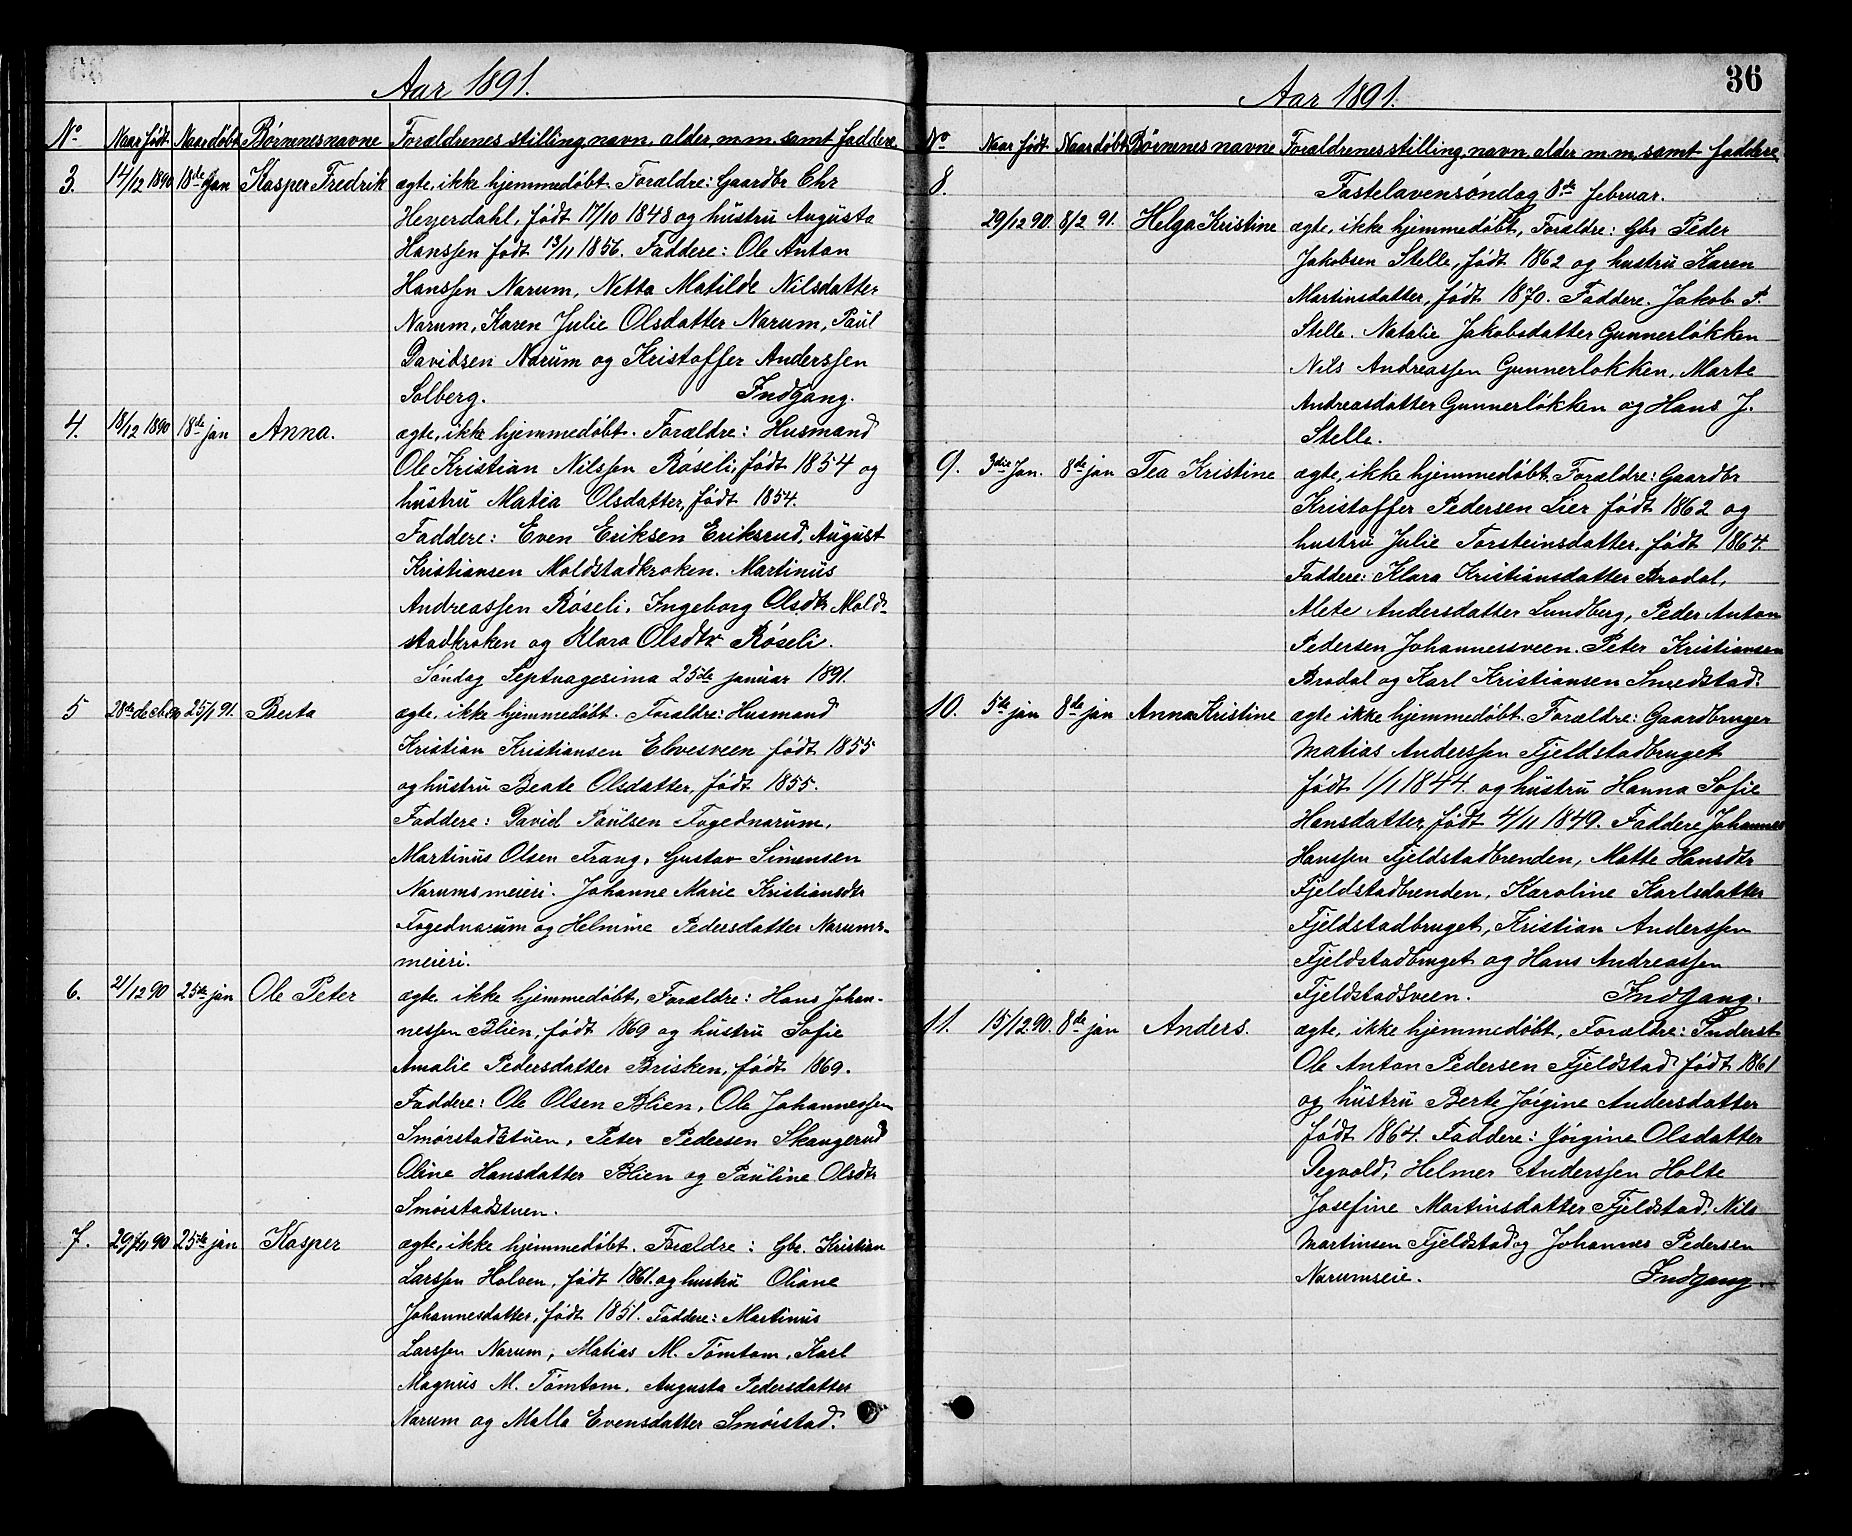 Aar 1891.
No Naar født Naar døbt Børnenes navne Forældrenes stilling, navn, alder, m.m. samt faddere
3. 14/12 1890 18de Jan Kasper Fredrik ægte, ikke hjemmedøbt. Forældre: Gaardbr Chr
Heyerdahl, født 17/10 1848 og hustru Augusta
Hanssen født 13/11 1856. Faddere: Ole Anton
Hanssen Narum, Netta Matilde Nilsdatter
Narum, Karen Julie Olsdatter Narum, Paul
Davidsen Narum og Kristoffer Anderssen
Solberg. Indgang.
4. 18/12 1890 18de jan Anna. ægte, ikke hjemmedøbt. Forældre: Husmand
Ole Kristian Nilssen Røseli, født 1854 og
hustru Matea Olsdatter, født 1854.
Faddere: Even Eriksen Eriksrud, August
Kristiansen Moldstadkroken. Martinus
Andreassen Røseli, Ingeborg Olsdtr Mold-
stadkroken og Klara Olsdtr Røseli.
Søndag Septuagesima 25de januar 1891.
5 28de decbr 25/1 91. Berta ægte, ikke hjemmedøbt. Forældre: Husmand
Kristian Kristiansen Elvesveen født 1855
og hustru Beate Olsdatter, født 1855.
Faddere: David Paulsen Fogednarum,
Martinus Olsen Trang, Gustav Simensen
Narumsmeieri. Johanne Marie Kristiansdtr
Fogednarum og Helmine Pedersdatter Narums-
meieri.
6. 21/12 90 25de jan Ole Peter ægte ikke hjemmedøbt, Forældre: Hans Johan-
nessen Blien, født 1869 og hustru Sofie
Amalie Pedersdatter Brisken, født 1869.
Faddere: Ole Olsen Blien, Ole Johannessen
Smørstadstuen, Peter Pedersen Skaugerud
Oline Hansdatter Blien og Pauline Olsdtr
Smørstadstuen.
7. 29/11 90 25de jan Kasper ægte, ikke hjemmedøbt. Forældre: Gbr. Kristian
Larssen Holven, født 1861. og hustru Oliane
Johannesdatter, født 1851. Faddere: Martinus
Larssen Narum, Matias M. Tømtom, Karl
Magnus M. Tømtom, Augusta Pedersdatter
Narum og Malla Evensdatter Smørstad.
36
Aar 1891.
No Naar født Naar døbt Børnenes navne Forældrenes stilling, navn, alder m.m. samt faddere
8. Fastelavensøndag 8de februar.
29/12 90. 8/2 91. Helga Kristine ægte, ikke hjemmedøbt, Forældre: Gbr Peder
Jakobsen Stelle, født 1862 og hustru Karen
Martinsdatter, født 1870. Faddere. Jakob P.
Stelle. Natalie Jakobsdatter Gunnerløkken
Nils Andreassen Gunnerløkken, Marte
Andreasdatter Gunnerløkken og Hans J.
Stelle.
9. 3die Jan. 8de jan Tea Kristine ægte, ikke hjemmedøbt. Forældre: Gaardbr
Kristoffer Pedersen Lier født 1862 og
hustru Julie Torsteinsdatter, født 1864.
Faddere: Klara Kristiansdatter Brodal,
Mete Andersdatter Lundberg, Peder Anton
Pedersen Johannessveen. Peter Kristiansen
Brodal og Karl Kristiansen Smedstad.
10. 5te jan 8de jan Anna Kristine ægte ikke hjemmedøbt. Forældre: Gaardbruger
Matias Anderssen Fjeldstadbruget
født 1/1 1844. og hustru Hanna Sofie
Hansdatter, født 4/11 1849. Faddere Johannes
Hanssen Fjeldstadbrenden, Matte Hansdtr
Fjeldstadbrenden, Karoline Karlsdatter
Fjeldstadbruget, Kristian Anderssen
Fjeldstadbruget og Hans Andreassen
Fjeldstadsveen. Indgang.
11. 15/12 90. 8de jan Anders. ægte, ikke hjemmedøbt, Forældre: Inderst
Ole Anton Pedersen Fjeldstad født 1861
og hustru Berte Jørgine Andersdatter
født 1864. Faddere: Jørgine Olsdatter
Degvold, Helmer Anderssen Holte
Josefine Martinsdatter Fjeldstad. Nils
Martinsen Fjeldstad og Johannes Pedersen
Narumseie. Indgang.